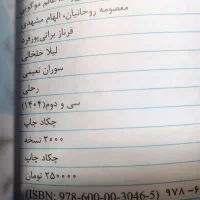 معصومه روحانیان، الهام مشهدی
فرناز براتی‌پورفرد
لیلا خلخالی
سوران نعیمی
رحلی
سی و دوم (۱۴۰۴)
چکاد چاپ
۲۰۰۰ نسخه
چکاد چاپ
۲۵۰۰۰۰ تومان
۹۷۸-۶ (ISBN: 978-600-00-3046-5)